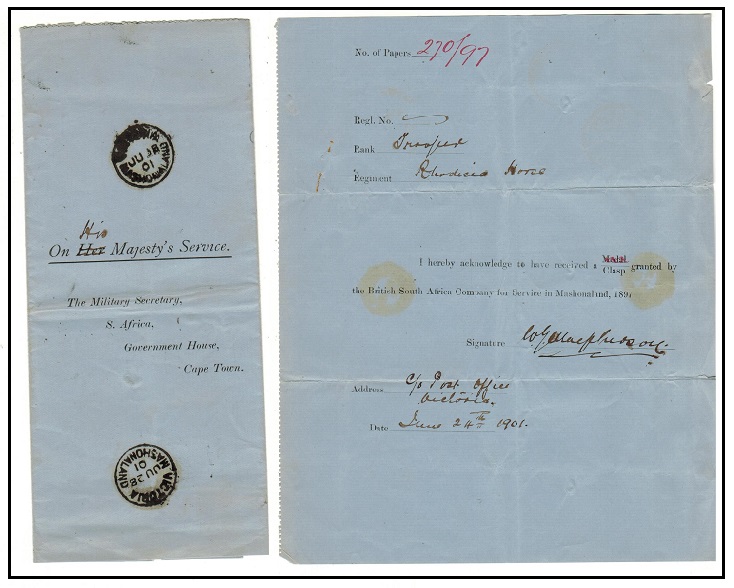 JU 28
01
MASHONALAND
His
On Her Majesty's Service.
The Military Secretary,
S. Africa,
Government House,
Cape Town.
VICTORIA
JU 28
01
MASHONALAND
No. of Papers 270/97
Regl. No.
Rank Trooper
Regiment Rhodesia Horse
I hereby acknowledge to have received a Medal
Clasp granted by
the British South Africa Company for Service in Mashonaland, 189
Signature W G Macpherson
Address c/o Post Office
Victoria.
Date June 24th 1901.